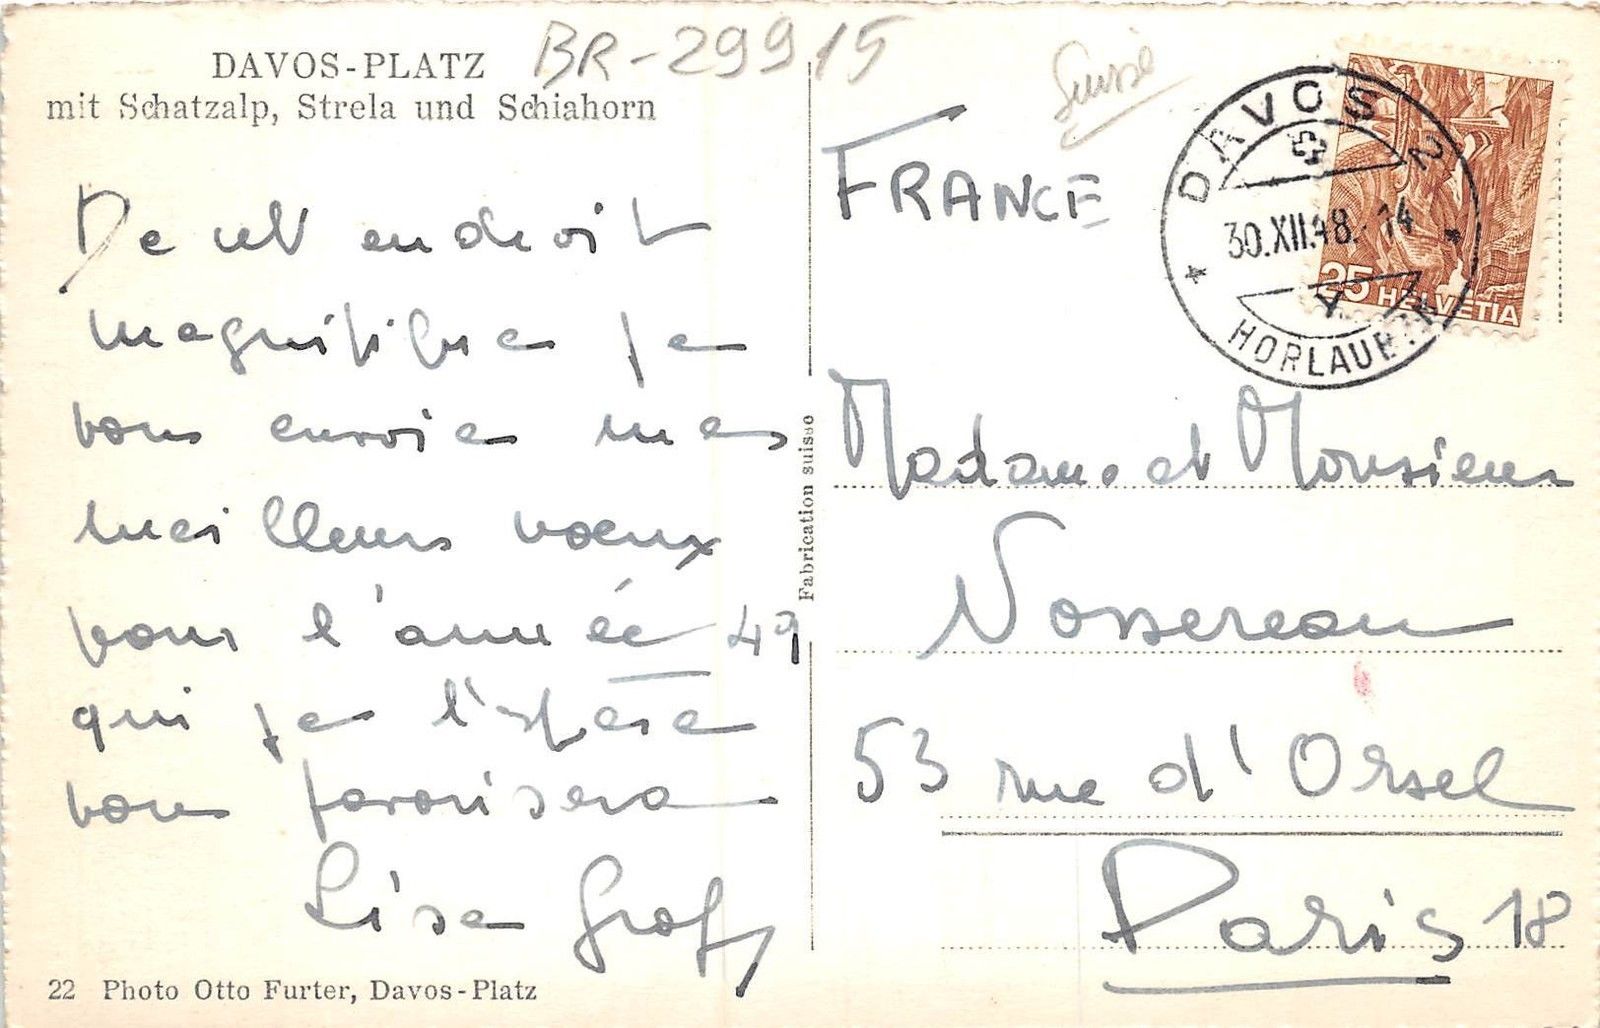 DAVOS-PLATZ
mit Schatzalp, Strela und Schiahorn
BR-29915
Suisse
De cet endroit
magnifique je
vous envoie mes
meilleurs voeux
pour l'année 49
qui je l'espère
vous favorisera
Lisa
22 Photo Otto Furter, Davos-Platz
Fabrication suisse
FRANCE
DAVOS 2
30.XII.48. 14
25 HELVETIA
Madame et Monsieur
Nossereau
53 rue d'Orsel
Paris 18